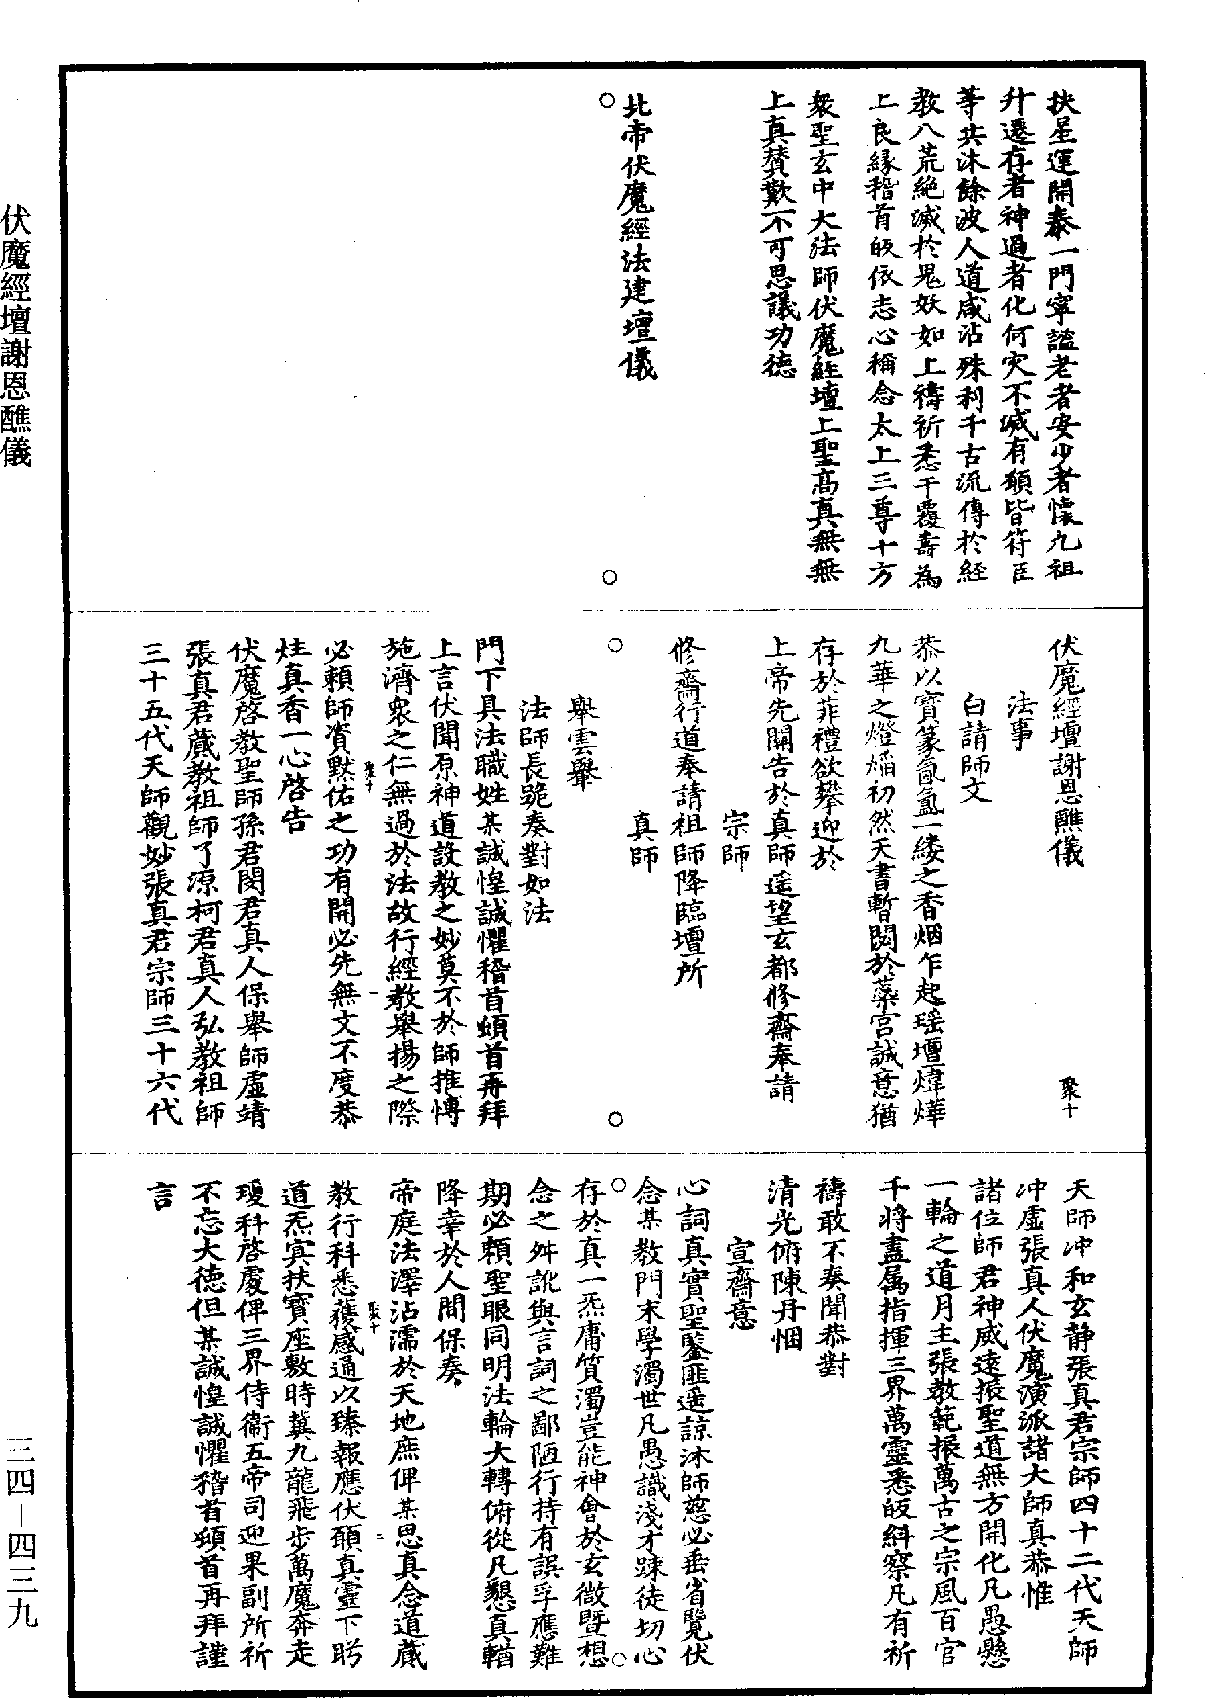 扶星運開泰一門寧謐老者安少者懷九祖
升遷存者神過者化何灾不滅有願皆符臣
等共沐餘波人道咸沾殊利千古流傳於經
教八荒絶滅於鬼妖如上禱祈悉干覆壽為
上良緣稽首皈依志心稱念太上三尊十方
衆聖玄中大法師伏魔經壇上聖高真無無
上真賛歎不可思議功德
北帝伏魔經法建壇儀
伏魔經壇謝恩醮儀
聚十
法事
白請師文
恭以寳篆氤氳一縷之香烟乍起瑶壇煒燁
九華之燈熖初然天書暫閱於蘂宫誠意猶
存於菲禮欲攀迎於
上帝先關告於真師遥望玄都修齋奉請
宗師
修齋行道奉請祖師降臨壇所
真師
舉雲轝
法師長跪奏對如法
門下具法職姓某誠惶誠懼稽首頓首再拜
上言伏聞原神道設教之妙莫不於師推愽
施濟衆之仁無過於法故行經教舉揚之際
聚十
一
必賴師資黙佑之功有開必先無文不度恭
炷真香一心啓告
伏魔啓教聖師孫君閔君真人保舉師虚靖
張真君蔵教祖師了凉柯君真人弘教祖師
三十五代天師觀妙張真君宗師三十六代
天師冲和玄静張真君宗師四十二代天師
冲虚張真人伏魔演派諸大師真恭惟
諸位師君神威遠振聖道無方開化凡愚懸
一輪之道月主張教範振萬古之宗風百官
千將盡属指揮三界萬靈悉皈糾察凡有祈
禱敢不奏聞恭對
清光俯陳丹悃
宣齋意
心詞真實聖鑒匪遥諒沐師慈必垂省覽伏
念某教門末學濁世凡愚識淺才踈徒切心
存於真一炁庸質濁豈能神會於玄微暨想
念之舛訛與言詞之鄙陋行持有誤孚應難
期必賴聖眼同明法輪大轉俯從凡懇真輶
降幸於人間保奏
帝庭法澤沾濡於天地庶俾某思真念道蔵
聚十
二
教行科悉獲感通以臻報應伏願真靈下盻
道炁㝠扶寳座敷時冀九龍飛步萬魔奔走
瓊科啓處俾三界侍衞五帝司迎果副所祈
不忘大德但某誠惶誠懼稽首頓首再拜謹
言
伏魔經壇謝恩醮儀
三四—四三九